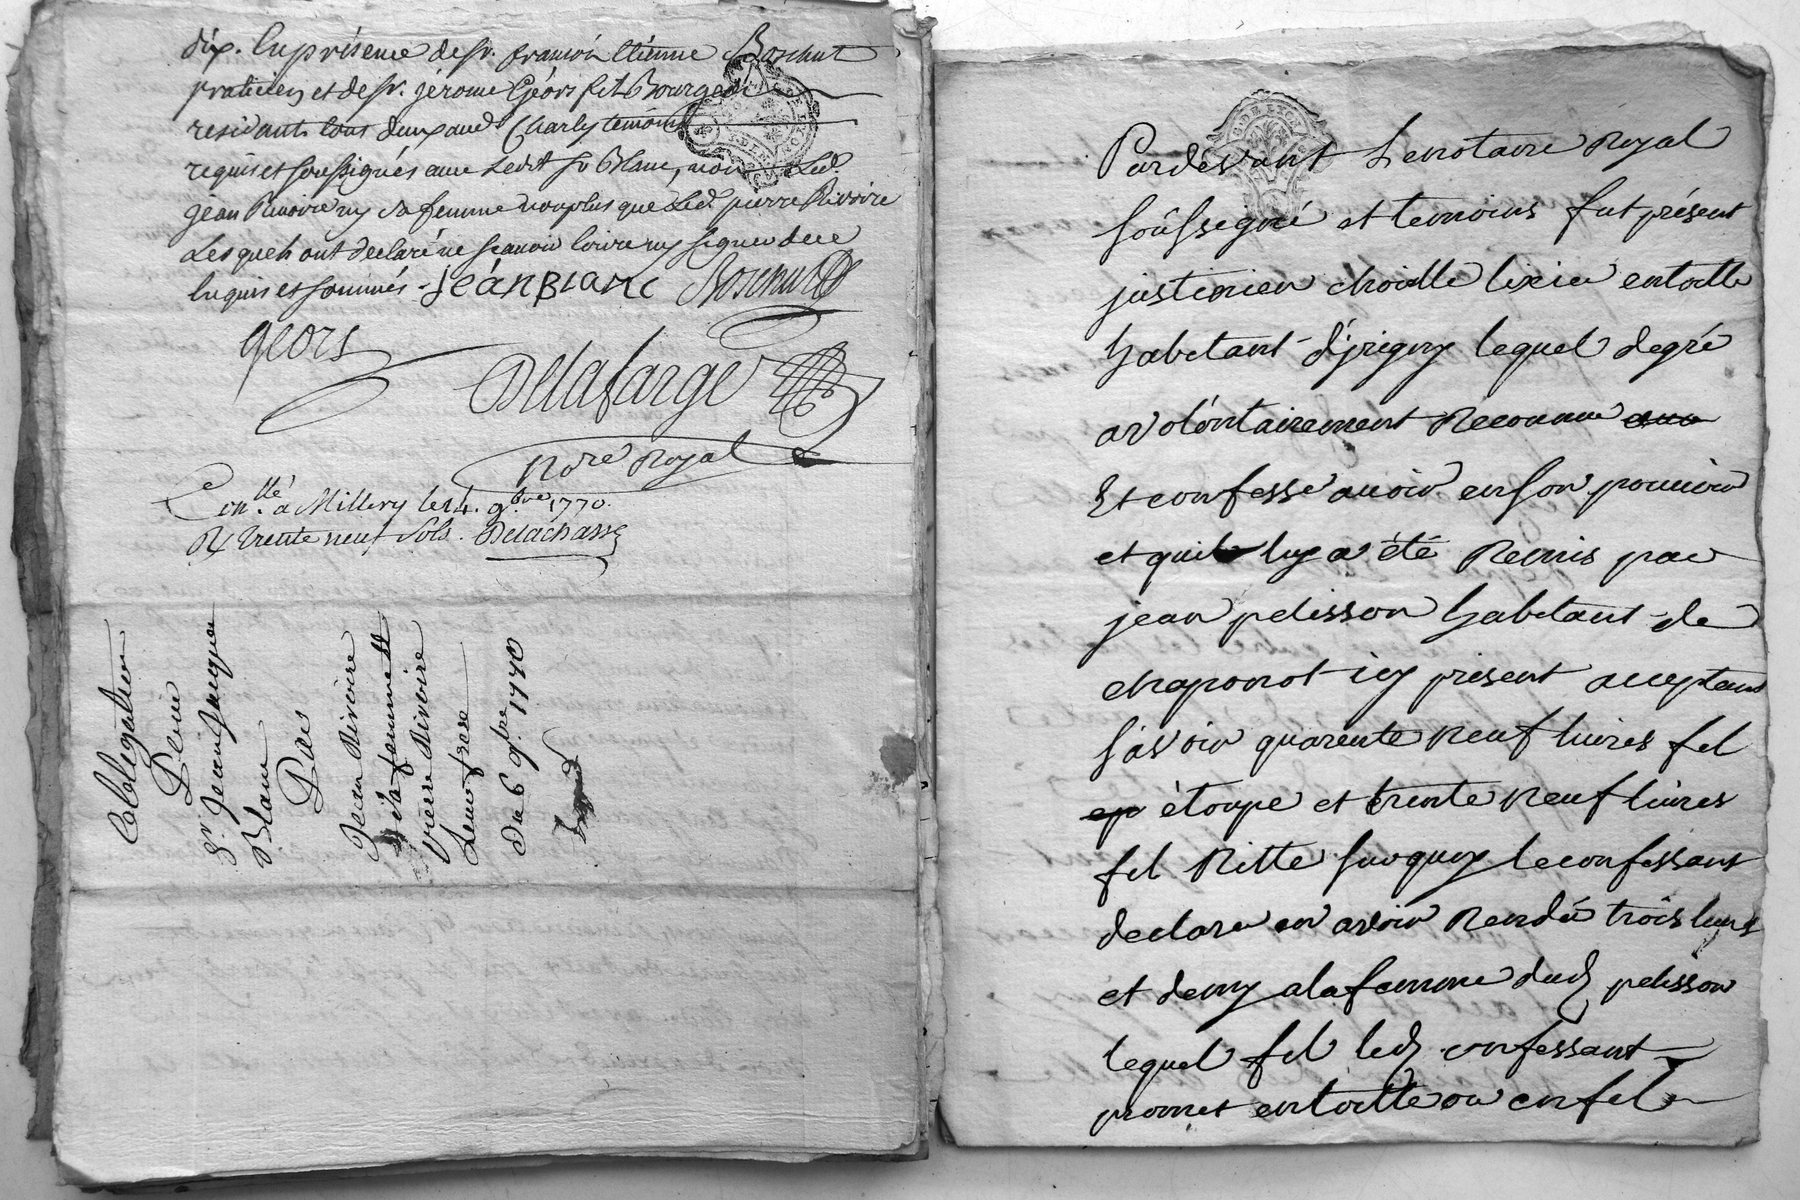 dix. En présence de sr. françois étienne Boschut
praticien et de sr. jérome Géors fil Bourgeois
résidants tous deux aud. Charly temoins
requis et soussignés avec ledit sr Blanc, non led.
jean Rivoire ny sa femme non plus que led. pierre Rivoire
Lesquels ont declaré ne scavoir écrire ny signer de ce
Enquis et sommés. jéan BLanc Boschut
géors
Delafarge
nore Royal
Conllé à Millery le 14. 9bre 1770.
R/ trente neuf sols. Delachasse
Colloqation
Pour
Sr. Jean Jacques
Blanc
Par
Jean Rivoire
sa femme et
Pierre Rivoire
Leur frere
Du 6 9bre. 1770
Pardevant Le notaire Royal
soussegné et temoins fut présent
justinien choille texier en toille
habitant d'jrigny lequel de gré
a volontairement Reconnu
Et confesse avoir en son pouvoir
et quil luy a été Remis par
jean pelisson habitant de
chaponot icy présent acceptant
sçavoir quarente neuf livres fil
ep étoupe et trente neuf livres
fil Ritte surquoy le confessant
declare en avoir Rendu trois livres
et demy a la femme dud. pelisson
lequel fil led. confessant
promet en toille ou en fil